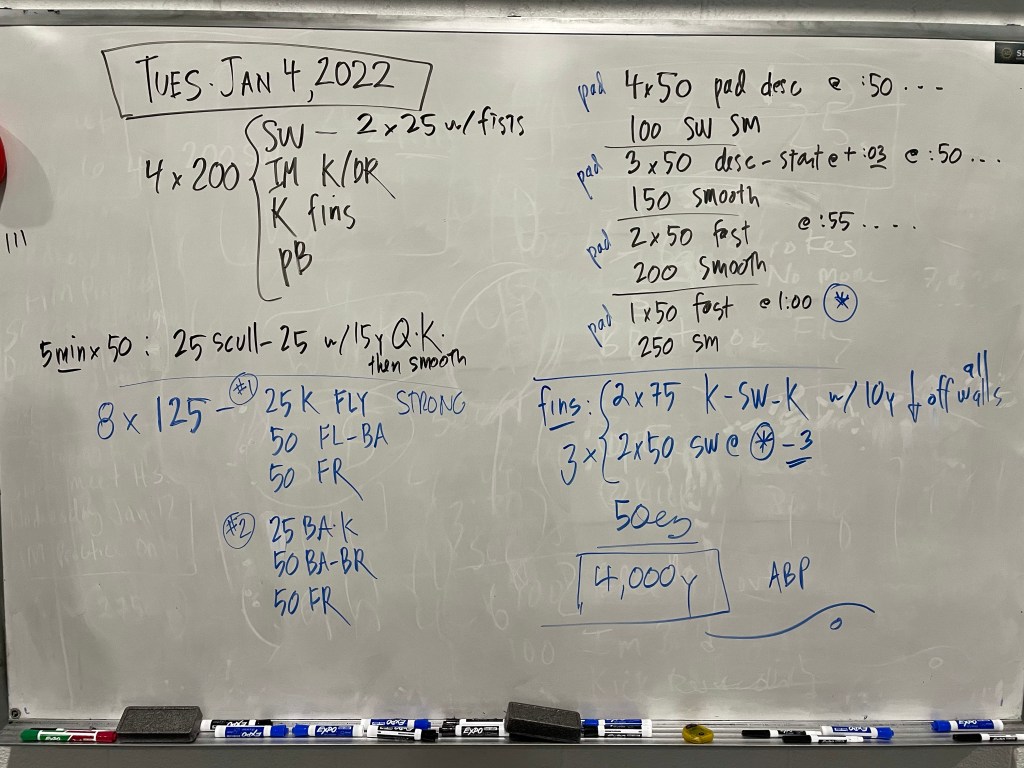 TUES. JAN 4, 2022
4 x 200 { SW - 2 x 25 w/ fists
IM K/DR
K fins
PB
5 min x 50 : 25 scull - 25 w/ 15y Q.K.
then smooth
8 x 125 - #1 25 K FLY STRONG
50 FL-BA
50 FR
#2 25 BA-K
50 BA-BR
50 FR
pad 4x50 pad desc @ :50 ...
100 SW SM
pad 3 x 50 desc - start @ + :03 @ :50 ...
150 smooth
pad 2 x 50 fast @ :55 ....
200 smooth
pad 1x50 fast @ 1:00 *
250 sm
fins: 3 x { 2 x 75 K-SW-K w/ 10y off all walls
2x50 SW @ * - 3
50 ez
4,000y ABP
EXPO